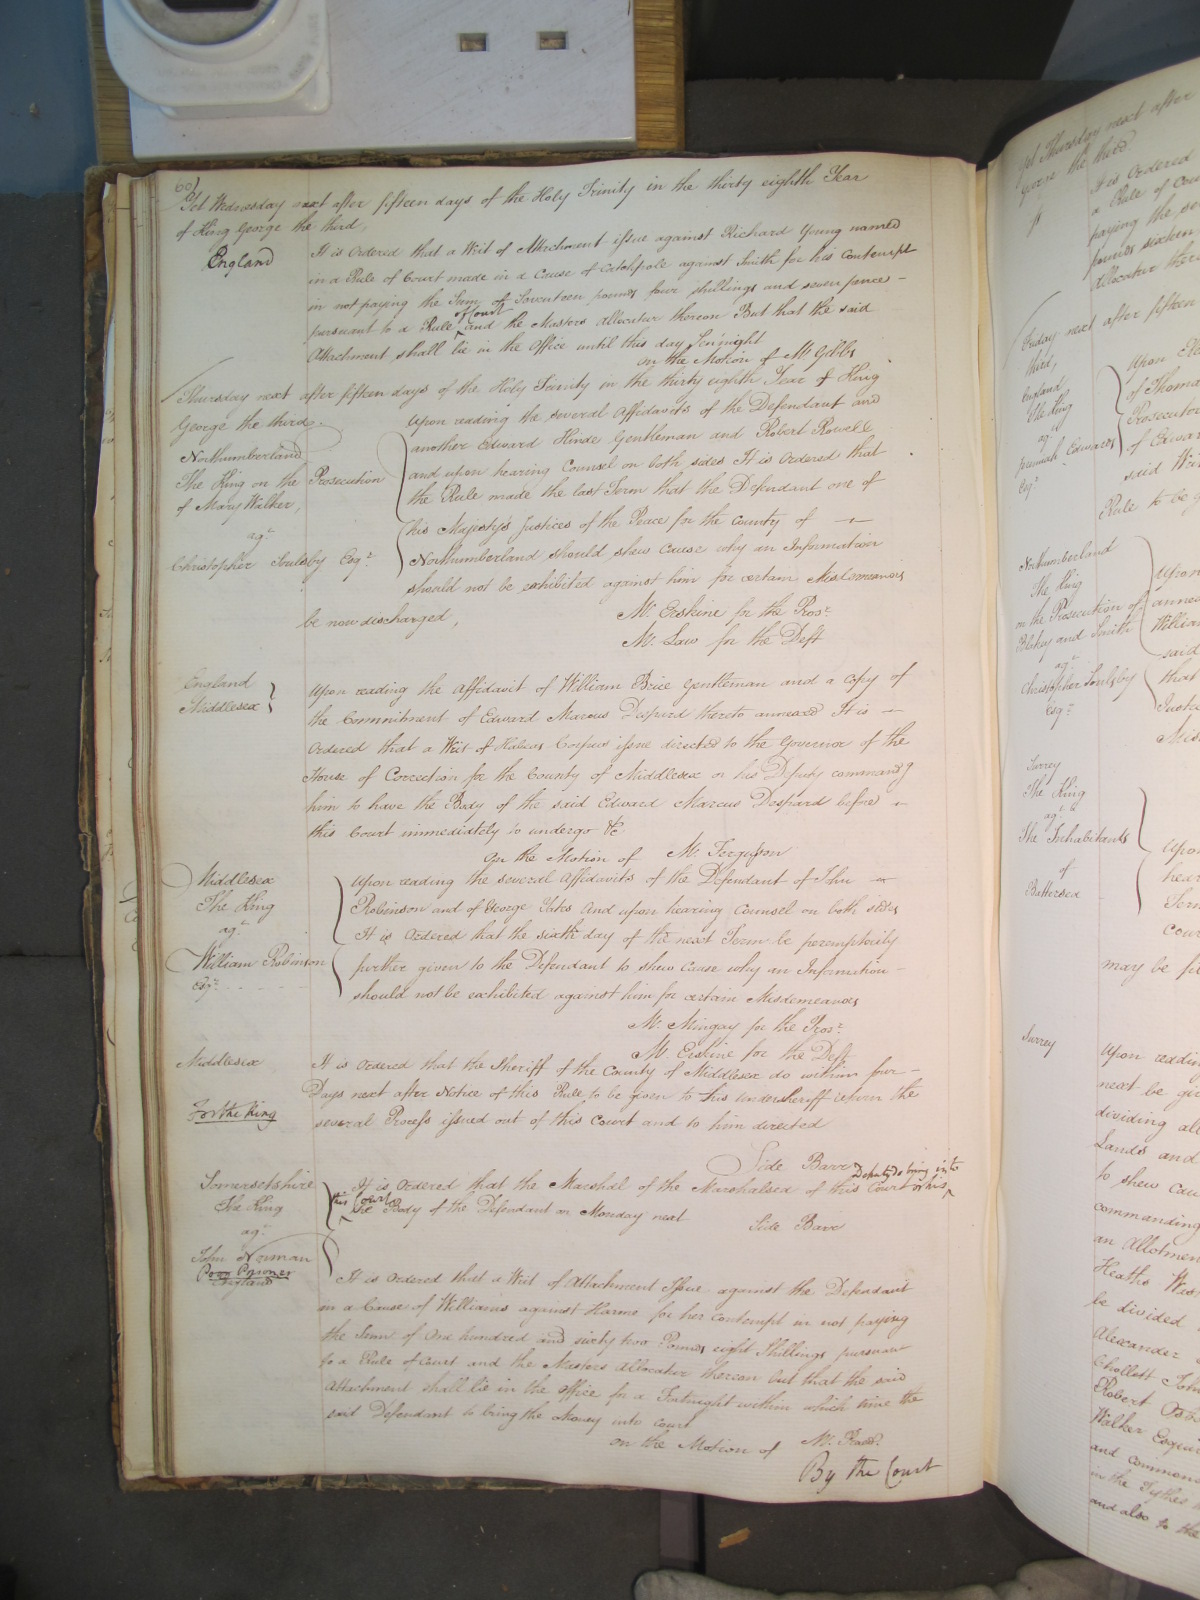 60)
Yet Wednesday next after fifteen days of the Holy Trinity in the thirty eighth Year
of King George the third,
England
It is Ordered that a Writ of Attachment issue against Richard Young named
in a Rule of Court made in a Cause of Catchpole against Smith for his Contempt
in not paying the Sum of Seventeen pounds four shillings and seven pence –
pursuant to a Rule of Court and the Masters Allocatur thereon But that the said
Attachment shall lie in the Office until this day Sen'night
on the Motion of Mr. Gibbs
Thursday next after fifteen days of the Holy Trinity in the thirty eighth Year of King
George the third.
Northumberland
The King on the Prosecution
of Mary Walker,
agt.
Christopher Soulsby Esqr.
Upon reading the several Affidavits of the Defendant and
another Edward Hinde Gentleman and Robert Rowell
and upon hearing Counsel on both sides It is Ordered that
the Rule made the last Term that the Defendant one of
his Majesty's Justices of the Peace for the County of –
Northumberland should shew cause why an Information
should not be exhibited against him for certain Misdemeanors
be now discharged,
Mr. Erskine for the Prosr.
Mr. Law for the Deft
England
Middlesex
Upon reading the Affidavit of William Brice Gentleman and a Copy of
the Commitment of Edward Marcus Despard thereto annexed It is –
Ordered that a Writ of Habeas Corpus issue directed to the Governor of the
House of Correction for the County of Middlesex or his Deputy commandg
him to have the Body of the said Edward Marcus Despard before –
this Court immediately to undergo &c
On the Motion of Mr. Fergusson
Middlesex
The King
agt.
William Robinson
Esqr.
Upon reading the several Affidavits of the Defendant of John –
Robinson and of George Yates And upon hearing Counsel on both sides
It is Ordered that the sixth day of the next Term be peremptorily
further given to the Defendant to shew cause why an Information –
should not be exhibited against him for certain Misdemeanors
Mr. Mingay for the Prosr.
Mr. Erskine for the Deft
Middlesex
For the King
It is Ordered that the Sheriff of the County of Middlesex do within four –
Days next after Notice of this Rule to be given to his undersheriff return the
several Process issued out of this Court and to him directed
Side Barr
Somersetshire
The King
agt.
John Norman
Poor Prisoner
It is Ordered that the Marshal of the Marshalsea of this Court or his Deputy do bring into
this Court the Body of the Defendant on Monday next
Side Barr
England
It is Ordered that a Writ of Attachment Issue against the Defendant
in a Cause of Williams against Harme for her contempt in not paying
the Sum of One hundred and sixty two Pounds eight Shillings pursuant
to a Rule of Court and the Masters Allocatur thereon but that the said
Attachment shall lie in the Office for a Fortnight within which time the
said Defendant to bring the Money into Court
on the Motion of Mr.
By the Court
Thursday next after
George the third
It is Ordered
a Rule of Cou
paying the se
pounds sixteen
Allocatur there
Friday next after fifteen
third,
England
The King
agt.
Edwards
Esqr.
Upon
of Thoma
Prosecutor
of Edwar
said Wri
Rule to be g
Northumberland
The King
on the Prosecution of
Blakey and Smith
agt.
Christopher Soulsby
Esqr.
Upon
annex
William
said
that
Justic
Mis
Surrey
The King
agt.
The Inhabitants
of
Battersea
Upon
hear
Term
Cour
may be fi
Surrey
Upon readin
next be gi
dividing all
Lands and
to shew cau
commanding
an Allotmen
Heaths Was
be divided
Alexander
Chollett John
Robert
Walker Esqui
and commons
in the Tythes
and also to the